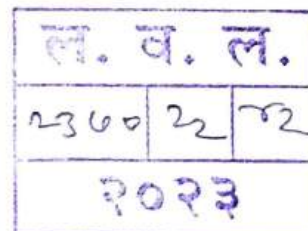 ल. व. ल.
२३७० २२ ४२
२०२३